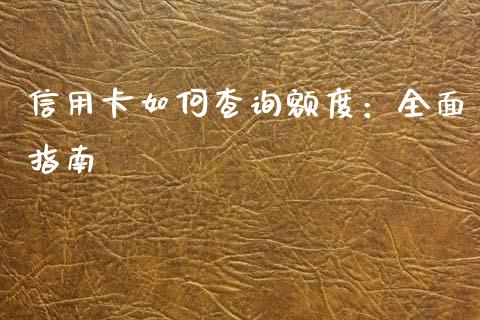 信用卡如何查询额度：全面
指南